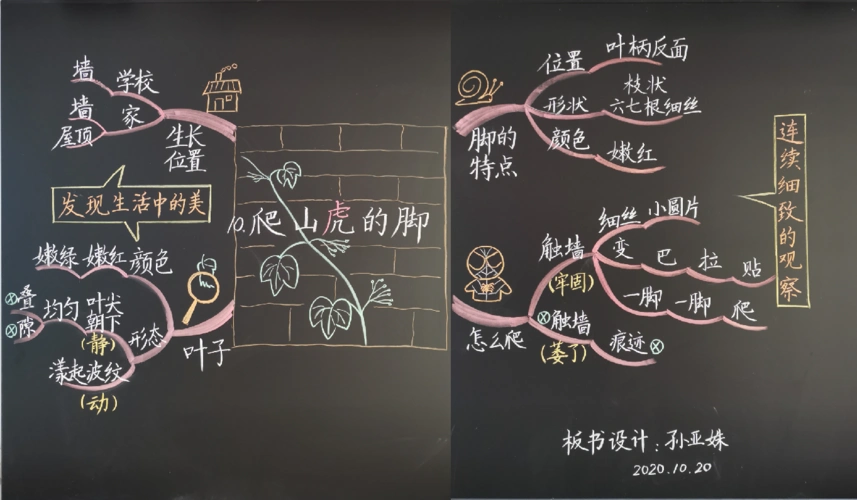 墙
学校
墙
家
屋顶
生长
位置
发现生活中的美
嫩绿
嫩红
颜色
叠
隙
均匀
叶尖
朝下
(静)
形态
漾起波纹
(动)
叶子
10.爬山虎的脚
位置
叶柄反面
形状
枝状
六七根细丝
颜色
嫩红
脚的
特点
连续细致的观察
触墙
(牢固)
细丝
小圆片
变
巴
拉
贴
一脚
一脚
爬
怎么爬
触墙
(萎了)
痕迹
板书设计:孙亚姝
2020.10.20